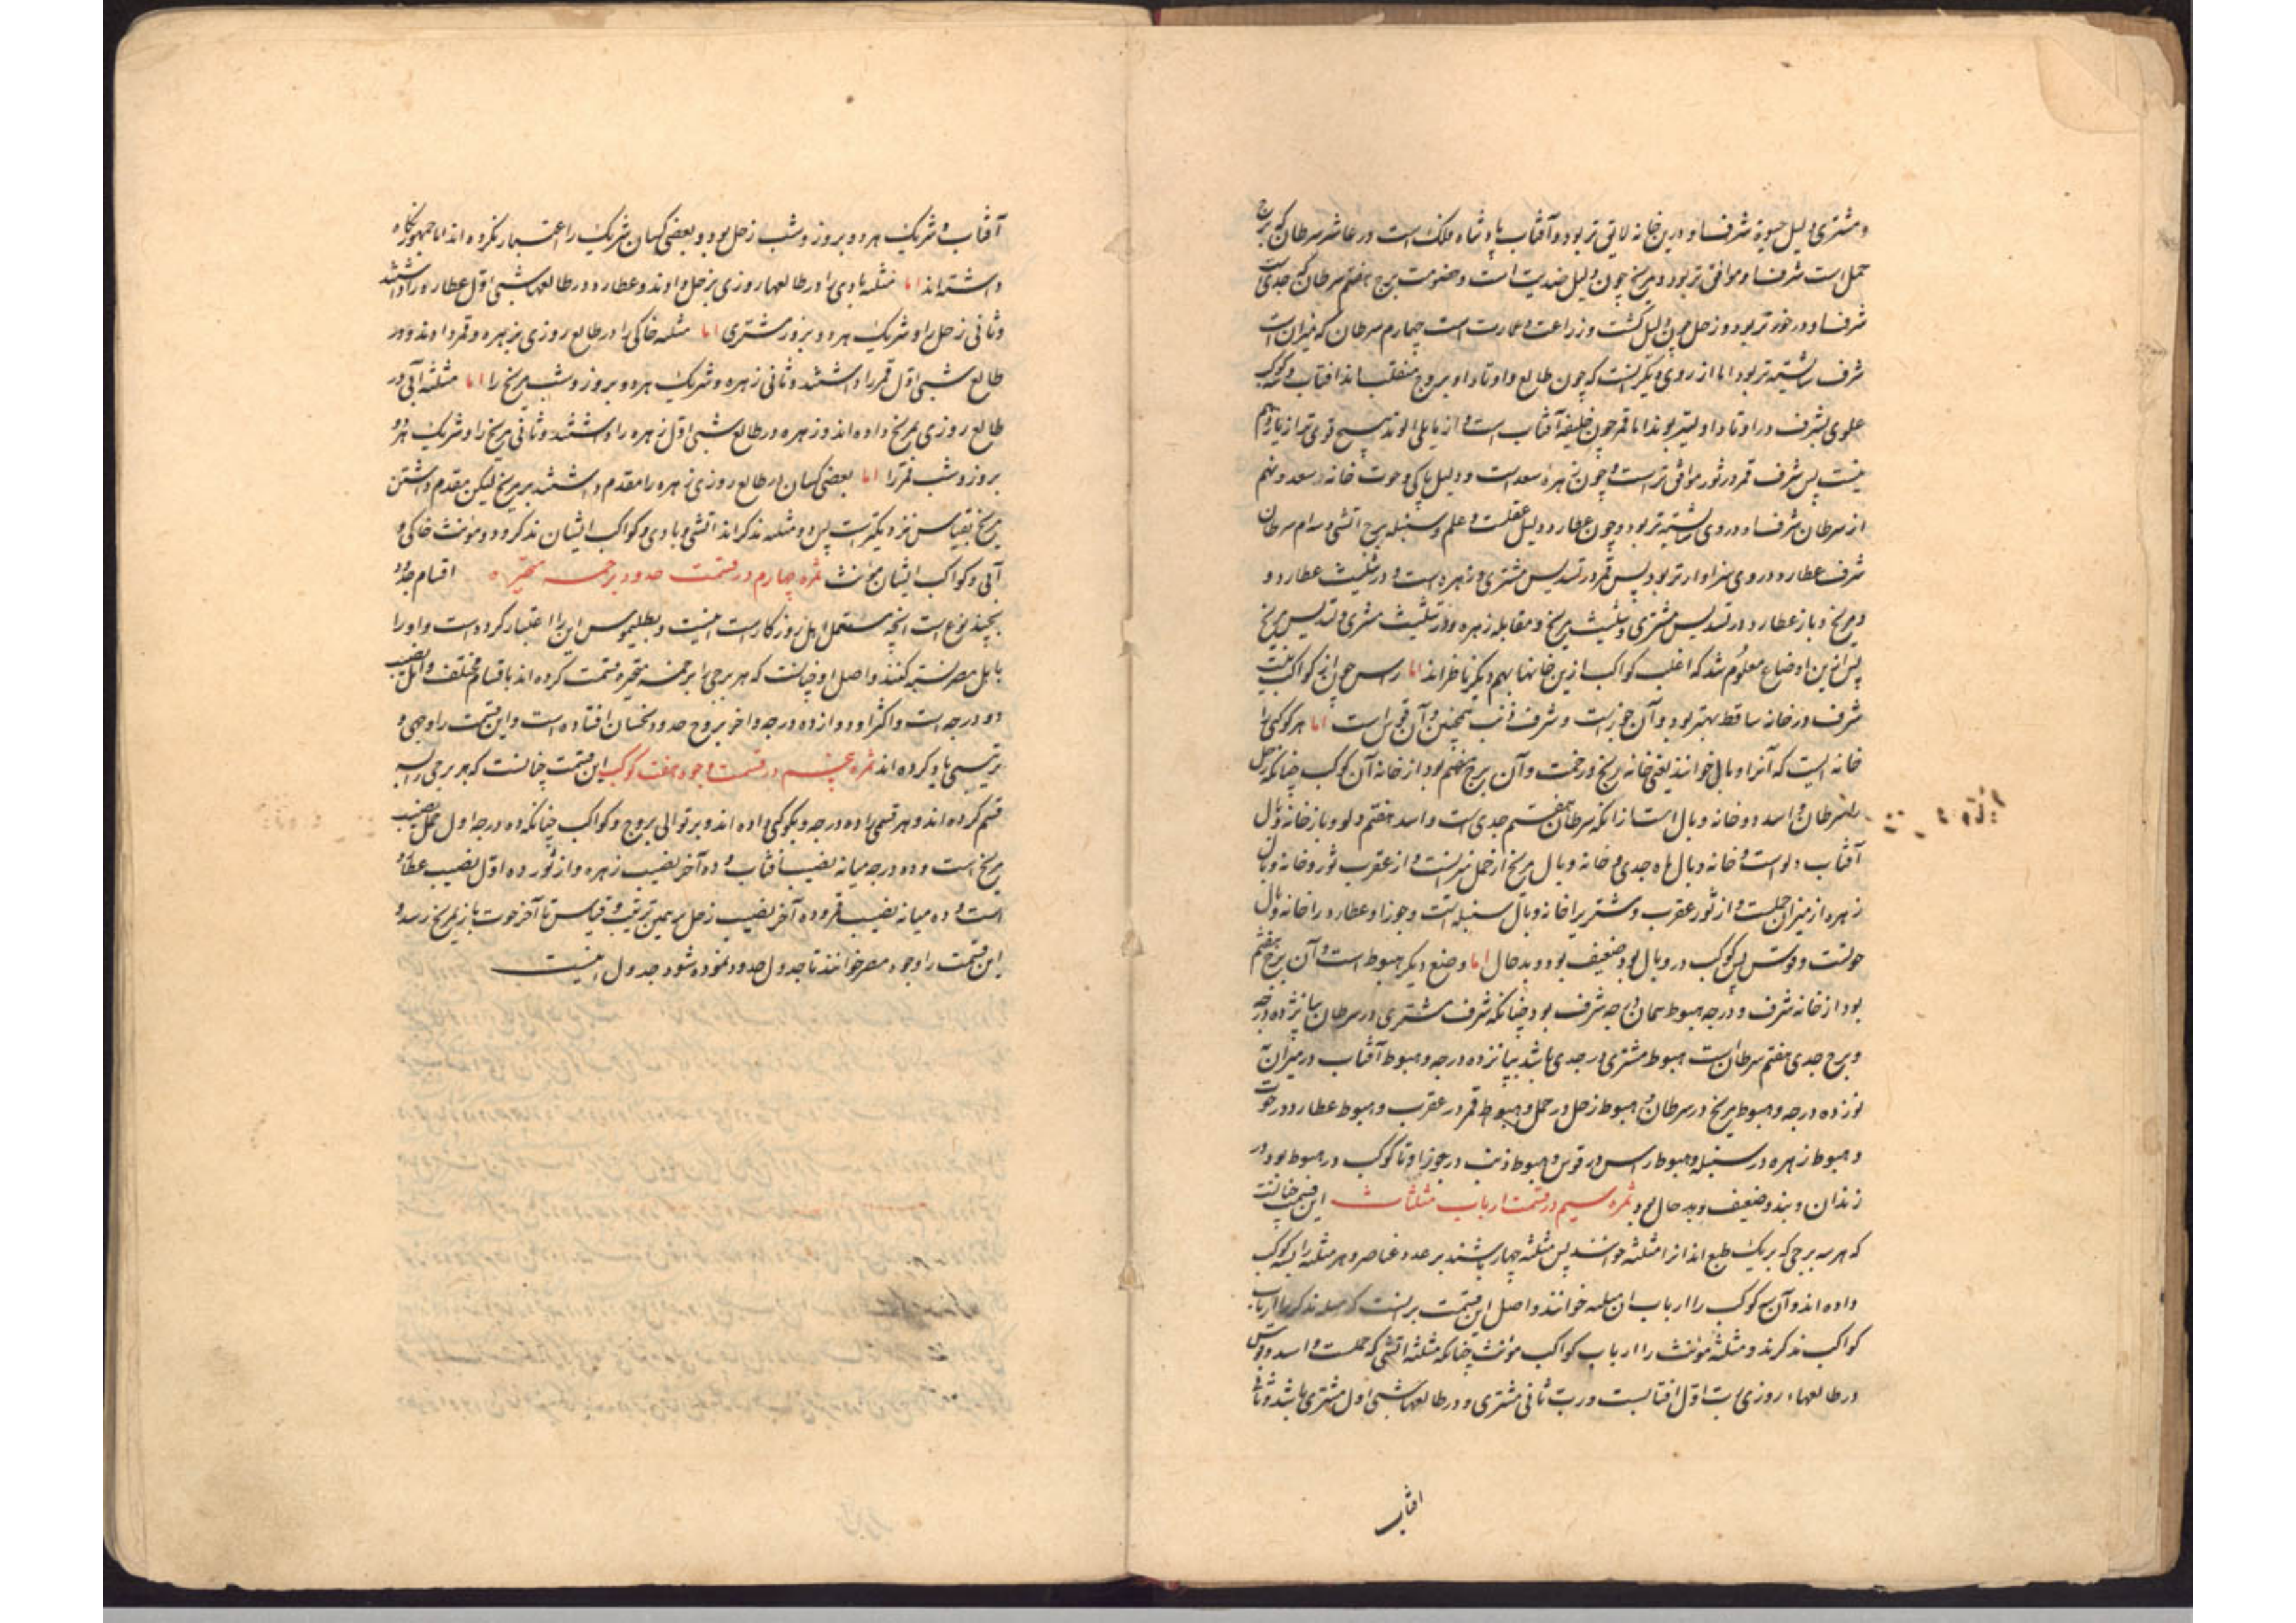 و مشتری دلیل حیوة شرف او درین خانه لایق تر بود و آفتاب پادشاه فلک است در عاشر سرطان که برج
حمل است شرف او موافق تر بود و مریخ چون دلیل ضدیت است و خصومت برج هفتم سرطان که جدی است
شرف او در خور تر بود و زحل چون دلیل کشت و زراعت و عمارت است چهارم سرطان که میزان است
شرف شایسته تر بود اما از روی دیگر آنست که چون طالع و اوتاد او بروج منقلب اند آفتاب و کوکب
علوی بشرف در اوتاد اولیتر بوند اما قمر چون خلیفه آفتاب است و از مایلی الوتد هیچ قوی تر از یازدهم
نیست پس شرف قمر در ثور موافق تر است و چون زهره سعد است و دلیل پاکی و حوت خانه سعد و نهم
از سرطان شرف او در وی شایسته تر بود و چون عطارد دلیل عقلست و علم و سنبله برج و سوم سرطان
شرف عطارد در وی سزاوارتر بود پس قمر در تسدیس مشتری و زهره است و در تثلیث عطارد و
و مریخ و باز عطارد در تسدیس مشتری و تثلیث مریخ و مقابله زهره و زهره در تثلیث مشتری و تسدیس مریخ
پس ازین اوضاع معلوم شد که اغلب کواکب ازین خانها بهم دیگر ناظراند اما راس چون از کواکب نیست
شرف در خانه ساقط بهتر بود و آن جوزاست و شرف ذنب همچنین و آن قوس است اما هر کوکبی را
خانه ایست که آنرا وبال خوانند یعنی خانه رنج و زحمت و آن برج هفتم بود از خانه آن کوکب چنانکه زحل
را سرطان و اسد دو خانه وبال است از آنکه سرطان هفتم جدی است و اسد هفتم دلو و باز خانه وبال
آفتاب دلو است و خانه وبال ماه جدی و خانه وبال مریخ از حمل میزانست و از عقرب ثور و خانه وبال
زهره از میزان حملست و از ثور عقرب و مشتری را خانه وبال سنبله است و جوزا و عطارد را خانه وبال
حوتست و قوس پس کوکب در وبال بود ضعیف بود و بدحال اما وضع دیگر هبوط است و آن برج هفتم
بود از خانه شرف و درجه هبوط همان درجه شرف بود چنانکه شرف مشتری در سرطان پانزده درجه
و برج جدی هفتم سرطان است هبوط مشتری در جدی باشد بپانزده درجه و هبوط آفتاب در میزان
نوزده درجه و هبوط مریخ در سرطان و هبوط زحل در حمل و هبوط قمر در عقرب و هبوط عطارد در حوت
و هبوط زهره در سنبله و هبوط راس در قوس و هبوط ذنب در جوزا و تا کوکب در هبوط بود در
زندان و بند و ضعیف و بد حال بود ثمره سیم در قسمت ارباب مثلثات این قسمت چنانست
که هر سه برجی که بر یک طبع اند آنرا مثلثه خوانند پس مثلثه چهار باشند بر عدد عناصر و هر مثلثه را بسه کوکب
داده اند و آن سه کوکب را ارباب آن مثلثه خوانند و اصل این قسمت بر آنست که مثلثه مذکر را ارباب
کواکب مذکرند و مثلثه مونث را ارباب کواکب مونث چنانکه مثلثه آتشی که حملست و اسد و قوس
در طالعهاء روزی رب اول آفتابست و رب ثانی مشتری و در طالعهاء شبی اول مشتری باشد و ثانی
افتاب
آفتاب و شریک هر دو بروز و شب زحل بود و بعضی کسان شریک را اعتبار نکرده اند اما جمهور نگاه
داشته اند اما مثلثه بادی را در طالعهاء روزی بزحل دادند و عطارد و در طالعهاء شبی اول عطارد را داشتند
و ثانی زحل را و شریک هر دو بروز مشتری اما مثلثه خاکی را در طالع روزی بزهره و قمر دادند و در
طالع شبی اول قمر را داشتند و ثانی زهره و شریک هر دو بروز و شب مریخ را اما مثلثه آبی در
طالع روزی بمریخ داده اند و زهره و در طالع شبی اول زهره را داشتند و ثانی مریخ را و شریک هر دو
بروز و شب قمر را اما بعضی کسان در طالع روزی زهره را مقدم داشتند بر مریخ لیکن مقدم داشتن
مریخ بقیاس نزدیکتر است پس دو مثلثه مذکراند آتشی و بادی و کواکب ایشان مذکر و دو مونث خاکی و
آبی و کواکب ایشان مونث ثمره چهارم در قسمت حدود بر خمسه متحیره اقسام حدود
بچند نوع است آنچه مستعمل اهل روزگار است اینست و بطلیموس این را اعتبار کرده است و او را
باهل مصر نسبت کنند و اصل او چنانست که هر برجی را بر خمسه متحیره قسمت کرده اند باقسام مختلف و اقل نصیب
دو درجه است و اکثر او دوازده درجه و آخر بروج حدود نحسان افتاده است و این قسمت را وجهی و
ترتیبی یاد کرده اند ثمره پنجم در قسمت وجوه هفت کوکب این قسمت چنانست که هر برجی را بسه
قسم کرده اند و هر قسمی را ده درجه و بکوکبی داده اند و بر توالی بروج و کواکب چنانکه ده درجه اول حمل نصیب
مریخ است و ده درجه میانه نصیب آفتاب و ده آخر نصیب زهره و از ثور ده اول نصیب عطارد
است و ده میانه نصیب قمر و ده آخر نصیب زحل بر همین ترتیب و قیاس تا آخر حوت باز بمریخ رسد و
این قسمت را وجوه مصر خوانند تا جدول حدود نموده شود جدول اینست